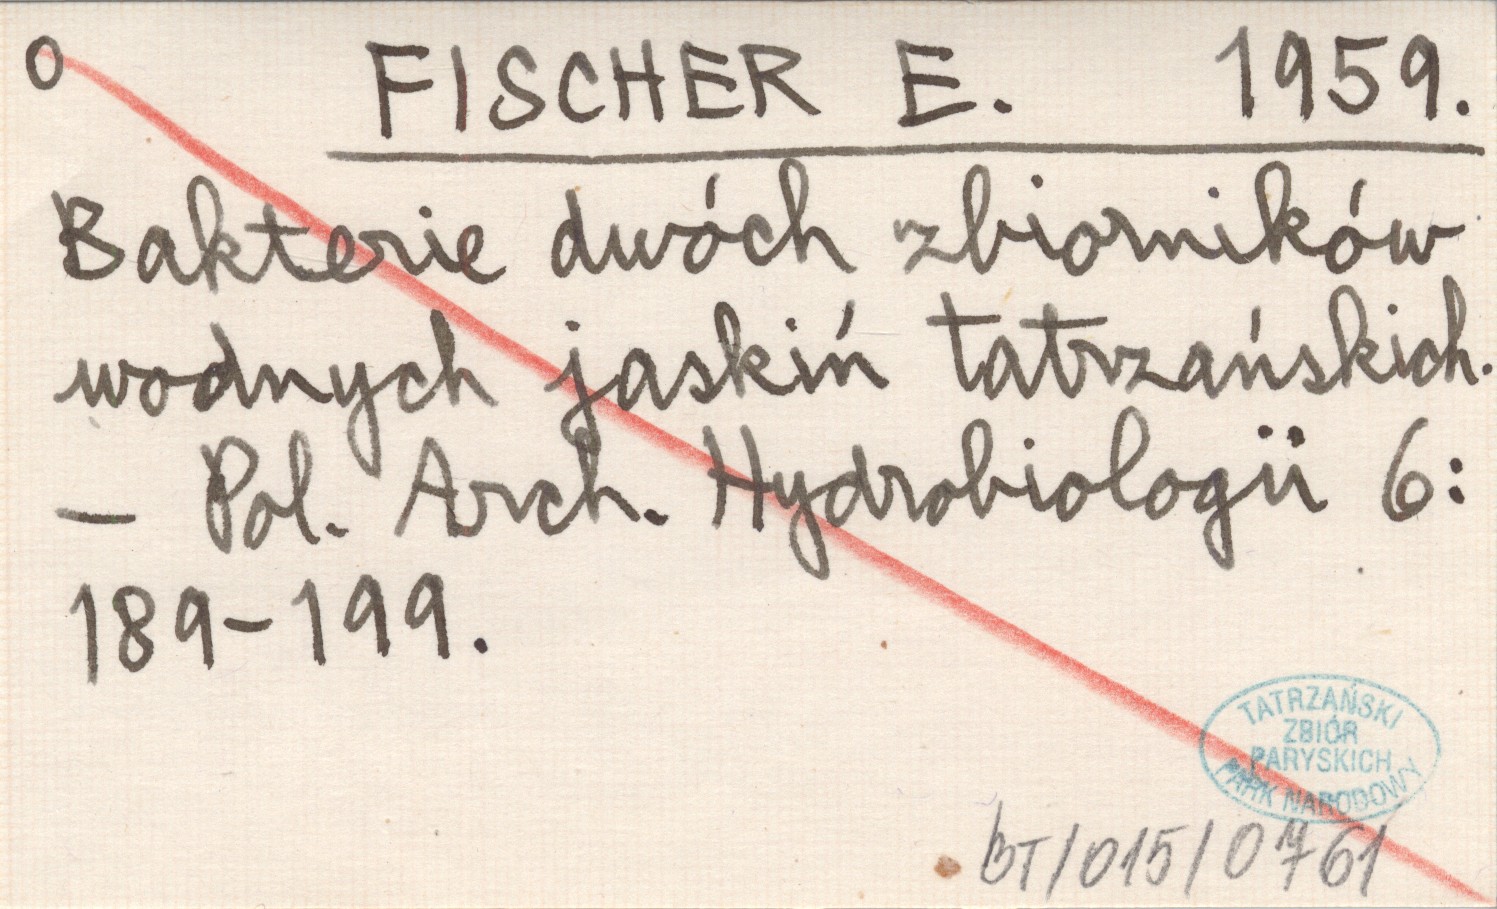 O FISCHER E. 1959.
Bakterie dwóch zbiorników
wodnych jaskiń tatrzańskich.
– Pol. Arch. Hydrobiologii 6:
189–199.
TATRZAŃSKI
ZBIÓR
PARYSKICH
PARK NARODOWY
BT/015/0761